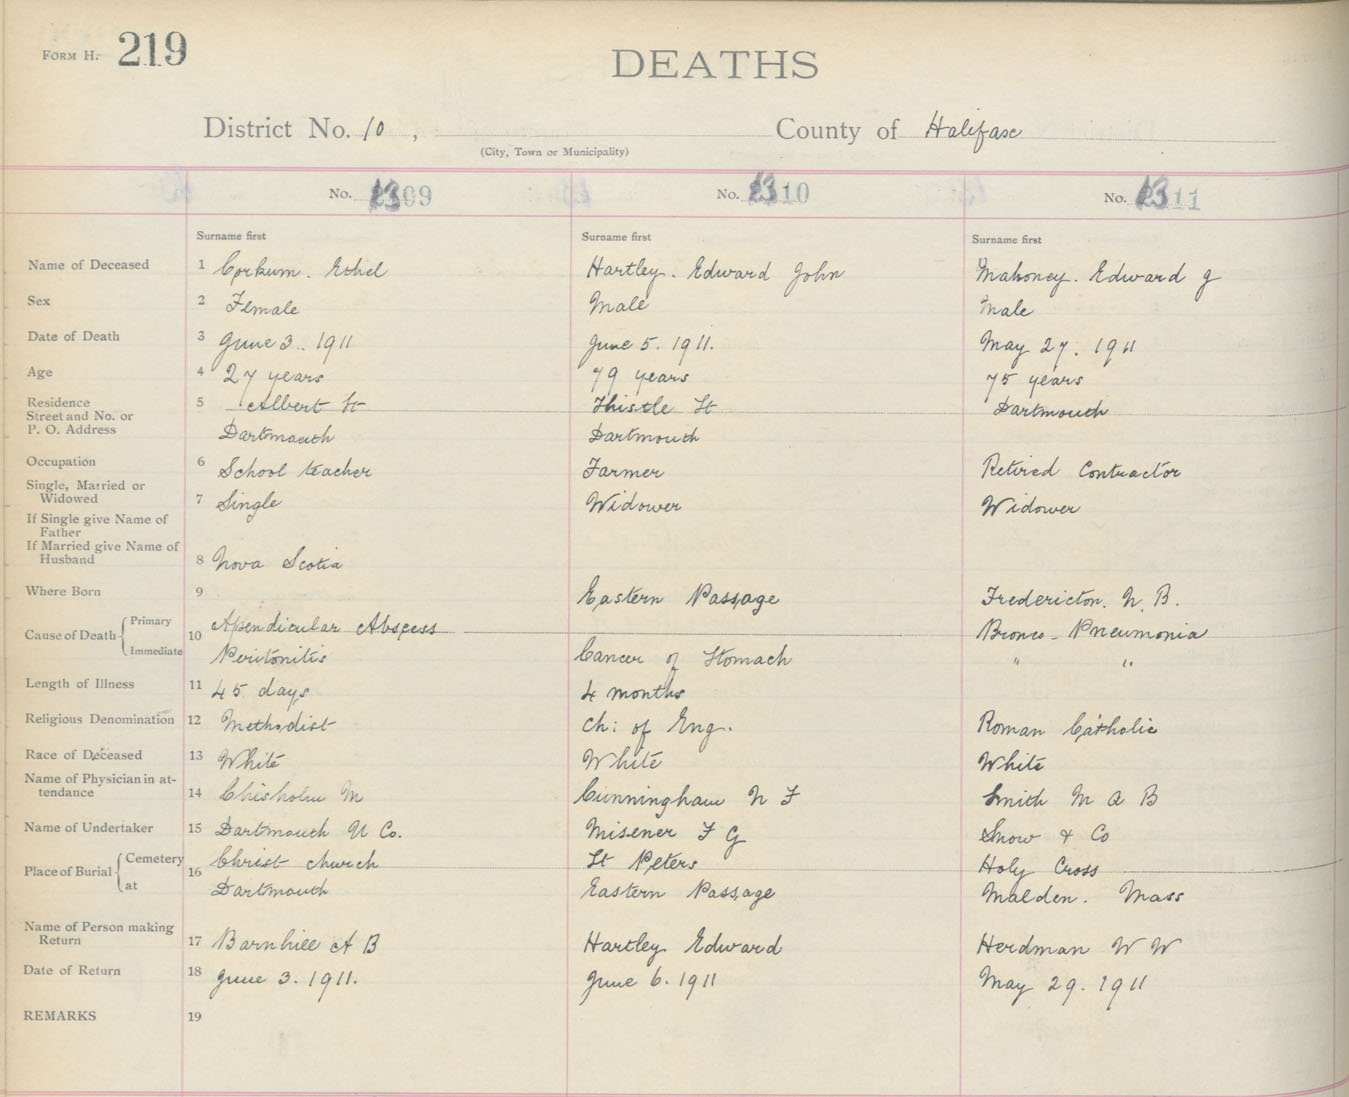 FORM H. 219
DEATHS
District No. 10 , County of Halifax
(City, Town or Municipality)
No. 1309 No. 1310 No. 1311
Surname first Surname first Surname first
Name of Deceased 1 Corkum. Ethel Hartley. Edward John Mahoney. Edward J
Sex 2 Female Male Male
Date of Death 3 June 3. 1911 June 5. 1911. May 27. 1911
Age 4 27 years 79 years 75 years
Residence 5 Albert St Thistle St Dartmouth
Street and No. or
P. O. Address Dartmouth Dartmouth
Occupation 6 School teacher Farmer Retired Contractor
Single, Married or
Widowed 7 Single Widower Widower
If Single give Name of
Father
If Married give Name of
Husband 8 Nova Scotia
Where Born 9 Eastern Passage Fredericton. N. B.
Cause of Death Primary 10 Apendicular Abscess Bronco-Pneumonia
Immediate Peritonitis Cancer of Stomach " "
Length of Illness 11 45 days 4 months
Religious Denomination 12 Methodist Ch: of Eng. Roman Catholic
Race of Deceased 13 White White White
Name of Physician in at-
tendance 14 Chisholm M Cunningham N F Smith M A B
Name of Undertaker 15 Dartmouth U Co. Misener F G Snow & Co
Place of Burial Cemetery 16 Christ Church St Peters Holy Cross
at Dartmouth Eastern Passage Malden. Mass
Name of Person making
Return 17 Barnhill A B Hartley Edward Herdman W W
Date of Return 18 June 3. 1911. June 6. 1911 May 29. 1911
REMARKS 19